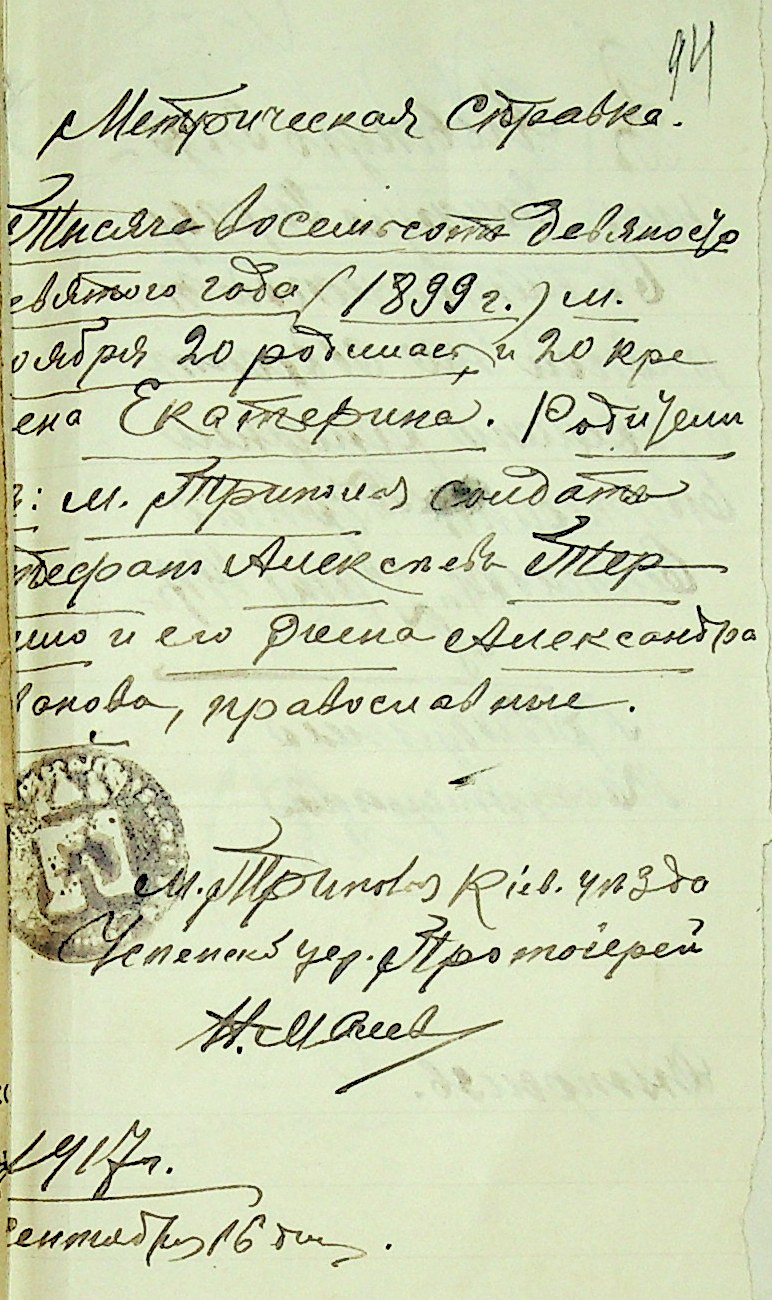 94
Метрическая Справка.
Тысяча восемьсотъ девяносто
евятого года (1899 г.) м.
оября 20 родилась и 20 кре
ена Екатерина. Родители
ъ: м. Триполья солдатъ
тефанъ Алексѣевъ Тер
ило и его жена Александра
ванова, православные.
м. Триполья Кіев. уѣзда
Успенской цер. Протоіерей
Н.
1917 г.
ентября 16 дня.